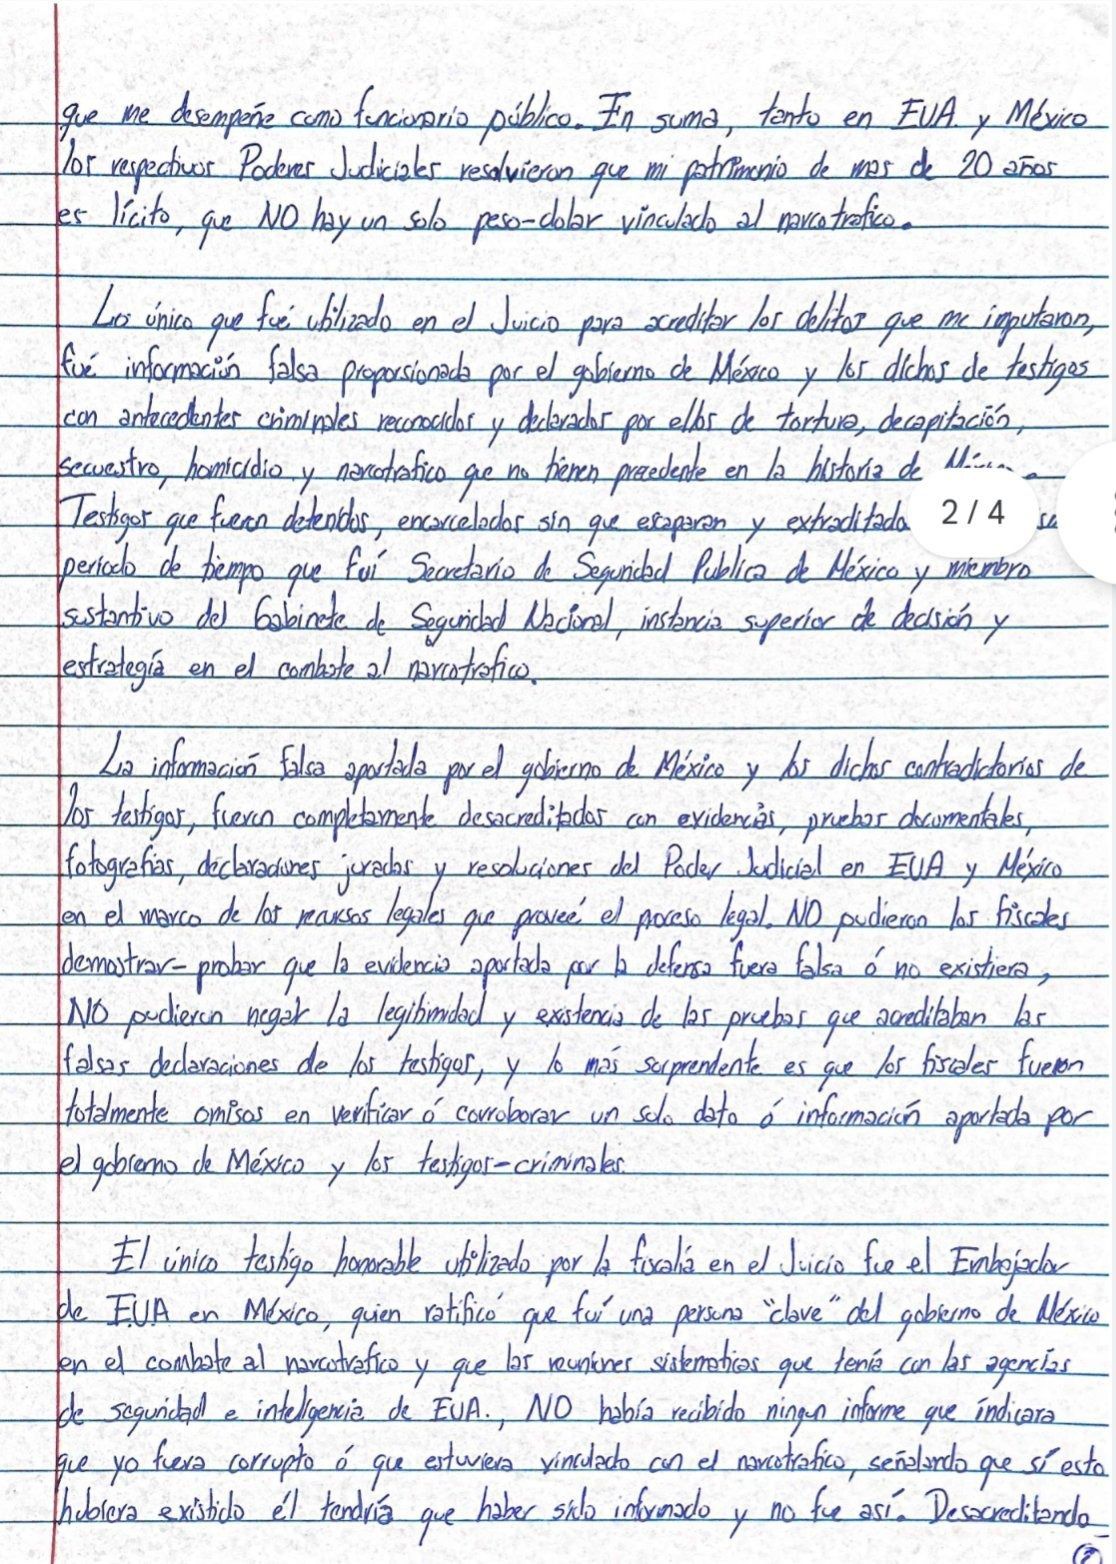 que me desempeñe como funcionario público. En suma, tanto en EUA. y México
los respectivos Poderes Judiciales resolvieron que mi patrimonio de mas de 20 años
es lícito, que NO hay un solo peso-dolar vinculado al narcotrafico.
Lo único que fué utilizado en el Juicio para acreditar los delitos que me imputaron,
fué información falsa proporsionada por el gobierno de México y los dichos de testigos
con antecedentes criminales reconocidos y declarados por ellos de tortura, decapitación,
secuestro, homicidio y narcotrafico que no tienen precedente en la historia de
Testigos que fueron detenidos, encarcelados sin que escaparan y extraditado
2/4
periodo de tiempo que fuí Secretario de Seguridad Publica de México y miembro
sustantivo del Gabinete de Seguridad Nacional, instancia superior de decisión y
estrategía en el combate al narcotrafico.
La información falsa aportada por el gobierno de México y los dichos contradictorios de
los testigos, fueron completamente desacreditados con evidencias, pruebas documentales,
fotografías, declaraciones juradas y resoluciones del Poder Judicial en EUA y México
en el marco de los recursos legales que proveé el proceso legal. NO pudieron los fiscales
demostrar-probar que la evidencia aportada por la defensa fuera falsa ó no existiera,
NO pudieron negar la legitimidad y existencia de las pruebas que acreditaban las
falsas declaraciones de los testigos, y lo más sorprendente es que los fiscales fueron
totalmente omisos en verificar ó corroborar un solo dato ó información aportada por
el gobierno de México y los testigos-criminales.
El único testigo honorable utilizado por la fiscalía en el Juicio fue el Embajador
de EUA en México, quien ratificó que fuí una persona "clave" del gobierno de México
en el combate al narcotrafico y que las reuniones sistematicas que tenía con las agencias
de seguridad e inteligencia de EUA., NO había recibido ningun informe que índicara
que yo fuera corrupto ó que estuviera vinculado con el narcotrafico, señalando que sí esto
hubiera existido él tendría que haber sido informado y no fue así. Desacreditando
2